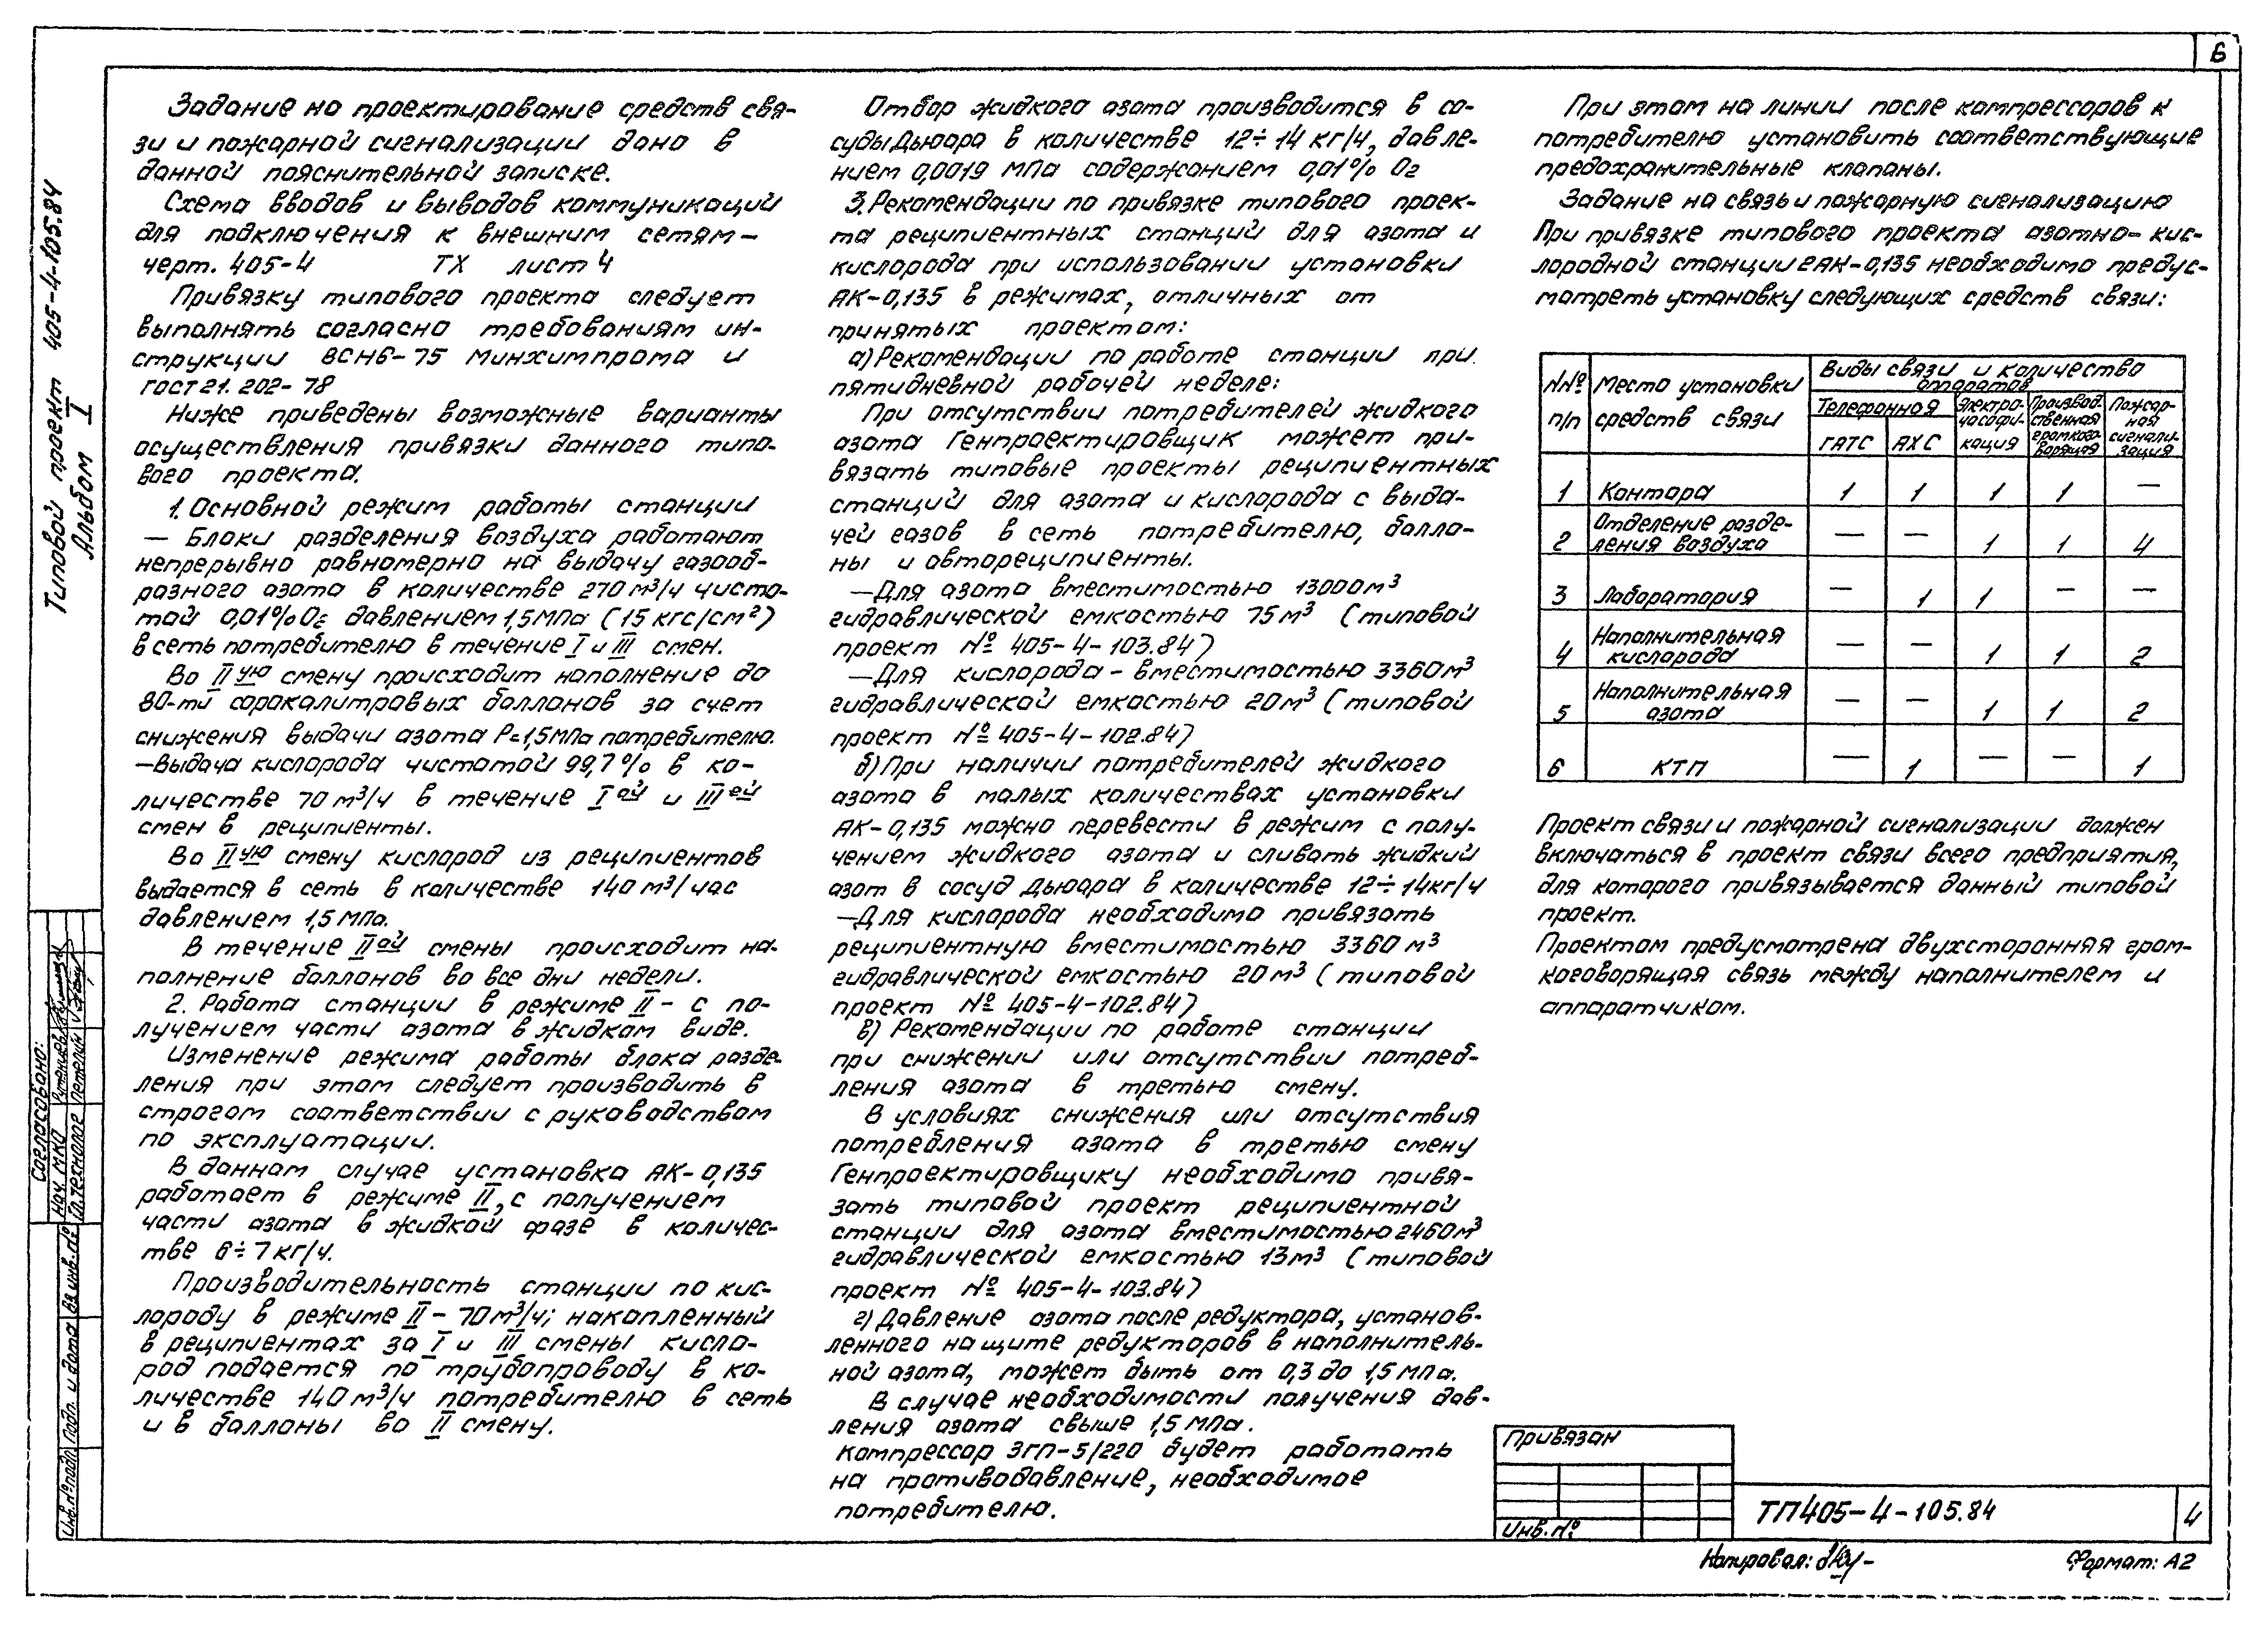 6
Типовой проект 405-4-105.84
Альбом I
Задание на проектирование средств свя-
зи и пожарной сигнализации дано в
данной пояснительной записке.
Схема вводов и выводов коммуникаций
для подключения к внешним сетям —
черт. 405-4 ТХ лист 4
Привязку типового проекта следует
выполнять согласно требованиям ин-
струкции ВСН6-75 Минхимпрома и
ГОСТ 21. 202-78
Ниже приведены возможные варианты
осуществления привязки данного типо-
вого проекта.
1. Основной режим работы станции
— Блоки разделения воздуха работают
непрерывно равномерно на выдачу газооб-
разного азота в количестве 270 м³/ч чисто-
той 0,01% O₂ давлением 1,5 МПа (15 кгс/см²)
в сеть потребителю в течение I и III смен.
Во II ую смену происходит наполнение до
80-ти сорокалитровых баллонов за счет
снижения выдачи азота Р=1,5МПа потребителю.
— Выдача кислорода чистотой 99,7% в ко-
личестве 70 м³/ч в течение I ой и III ей
смен в реципиенты.
Во II ую смену кислород из реципиентов
выдается в сеть в количестве 140 м³/час
давлением 1,5 МПа.
В течение II ой смены происходит на-
полнение баллонов во все дни недели.
2. Работа станции в режиме II - с по-
лучением части азота в жидком виде.
Изменение режима работы блока разде-
ления при этом следует производить в
строгом соответствии с руководством
по эксплуатации.
В данном случае установка АК-0,135
работает в режиме II, с получением
части азота в жидкой фазе в количес-
тве 6÷7 кг/ч.
Производительность станции по кис-
лороду в режиме II - 70 м³/ч; накопленный
в реципиентах за I и III смены кисло-
род подается по трубопроводу в ко-
личестве 140 м³/ч потребителю в сеть
и в баллоны во II смену.
Отбор жидкого азота производится в со-
суды Дьюара в количестве 12÷14 кг/ч, давле-
нием 0,0019 МПа содержанием 0,01% O₂
3. Рекомендации по привязке типового проек-
та реципиентных станций для азота и
кислорода при использовании установки
АК-0,135 в режимах, отличных от
принятых проектом:
а) Рекомендации по работе станции при
пятидневной рабочей неделе:
При отсутствии потребителей жидкого
азота Генпроектировщик может при-
вязать типовые проекты реципиентных
станций для азота и кислорода с выда-
чей газов в сеть потребителю, балло-
ны и автореципиенты.
— Для азота вместимостью 13000м³
гидравлической емкостью 75 м³ (типовой
проект № 405-4-103.84)
— Для кислорода - вместимостью 3360м³
гидравлической емкостью 20м³ (типовой
проект № 405-4-102.84)
б) При наличии потребителей жидкого
азота в малых количествах установки
АК-0,135 можно перевести в режим с полу-
чением жидкого азота и сливать жидкий
азот в сосуд Дьюара в количестве 12÷14кг/ч
— Для кислорода необходимо привязать
реципиентную вместимостью 3360 м³
гидравлической емкостью 20 м³ (типовой
проект № 405-4-102.84)
в) Рекомендации по работе станции
при снижении или отсутствии потреб-
ления азота в третью смену.
В условиях снижения или отсутствия
потребления азота в третью смену
Генпроектировщику необходимо привя-
зать типовой проект реципиентной
станции для азота вместимостью 2460м³
гидравлической емкостью 13м³ (типовой
проект № 405-4-103.84)
г) Давление азота после редуктора, установ-
ленного на щите редукторов в наполнитель-
ной азота, может быть от 0,3 до 1,5 МПа.
В случае необходимости получения дав-
ления азота свыше 1,5 МПа.
Компрессор 3ГП-5/220 будет работать
на противодавление, необходимое
потребителю.
При этом на линии после компрессоров к
потребителю установить соответствующие
предохранительные клапаны.
Задание на связь и пожарную сигнализацию
При привязке типового проекта азотно-кис-
лородной станции 2АК-0,135 необходимо предус-
мотреть установку следующих средств связи:
N№ п/п Место установки средств связи Виды связи и количество аппаратов
Телефонная Электро-часофи-кация Производ-ственная громкого-ворящая Пожар-ная сигнали-зация
ГАТС АХС
1 Контора 1 1 1 1 —
2 Отделение разде-ления воздуха — — 1 1 4
3 Лаборатория — 1 1 — —
4 Наполнительная кислорода — — 1 1 2
5 Наполнительная азота — — 1 1 2
6 КТП — 1 — — 1
Проект связи и пожарной сигнализации должен
включаться в проект связи всего предприятия,
для которого привязывается данный типовой
проект.
Проектом предусмотрена двухсторонняя гром-
коговорящая связь между наполнителем и
аппаратчиком.
Согласовано:
Нач. МКО
Гл. технолог Петелин
Инв. № подл Подп. и дата Вз инв. №
Привязан
Инв. №
ТП405-4-105.84
4
Копировал:
Формат: А2